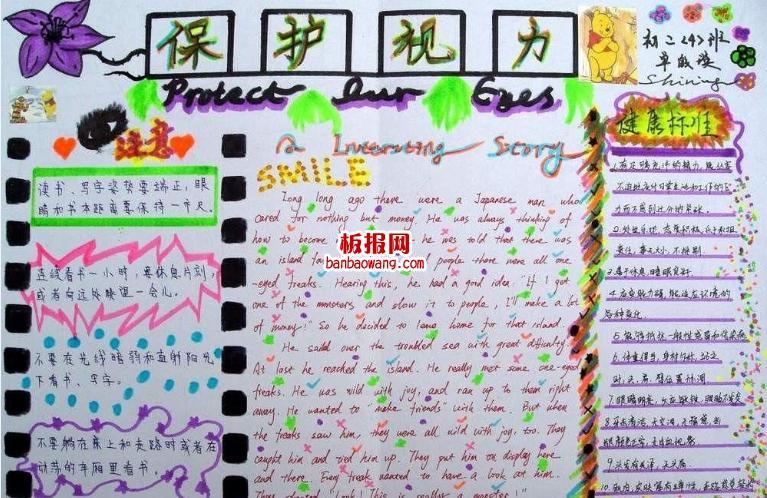 保护视力
初二〈4〉班
Shining
Protect Our Eyes
注意
读书、写字姿势要端正,眼
睛和书本距离要保持一个尺
连续看书一小时,要休息片刻,
或者向远处眺望一会儿。
不要在光线暗弱和直射阳光
下看书、写字。
不要躺在床上和走路时或者在
动荡的车厢里看书。
A Interesting Story
SMILE
Long long ago there were a Japanese man who
cared for nothing but money. He was always thinking of
how to become he was told that there was
an island far people there were all one-
eyed freaks. Hearing this, he had a good idea: "If I got
one of the monsters and show it to people, I'll make a lot
of money!" So he decided to leave home for that island.
He saild over the troubled sea with great difficulty.
At last he reached the island. He really met some one-eyed
freaks. He was wild with joy, and ran up to them right
away. He wanted to make friends with them. But when
the freaks saw him, they were all wild with joy, too. They
caught him and tied him up. They put him on display here
and there. Every freak wanted to have a look at him.
They shouted "Look! This is really a monster!"
板报网
banbaowang.com
健康标准
1.有足够充沛的精力,能从容
不迫地应付日常生活和工作的压
力而不感到过分的紧张。
2.处世乐观,态度积极,乐于承担
责任,事无大小,不挑剔。
3.善于休息,睡眠良好。
4.应变能力强,能适应环境的
各种变化。
5.能够抵抗一般性感冒和传染病
6.体重得当,身材均称,站立
时,头、肩、臂位置协调
7.眼睛明亮,反应敏锐,眼睑不发炎
8.牙齿清洁,无空洞,无痛感,齿
龈颜色正常,无出血现象。
9.头发有光泽,无头屑。